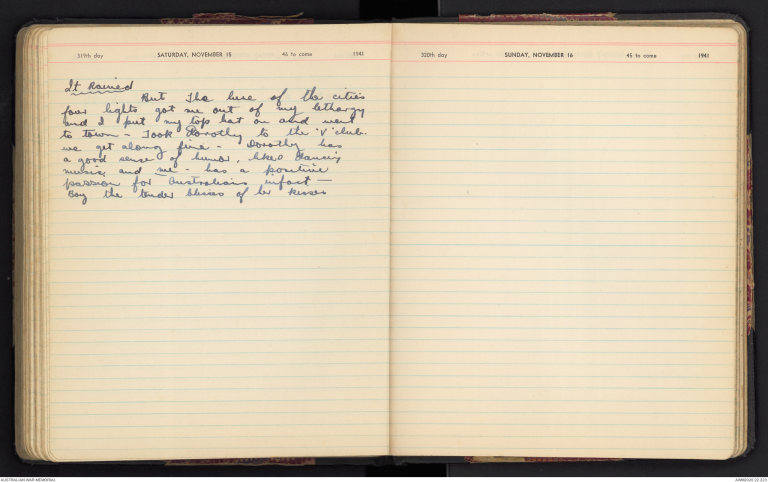 319th day SATURDAY, NOVEMBER 15 46 to come 1941
It Rained
But The lure of the cities
four lights got me out of my lethargy
and I put my top hat on and went
to town - Took Dorothy to the 'V' club.
we get along fine - Dorothy has
a good sense of humor, likes Dancing
music, and me - has a positive
passion for Australians infact -
Boy the tender blisses of her kisses
320th day SUNDAY, NOVEMBER 16 45 to come 1941
AUSTRALIAN WAR MEMORIAL